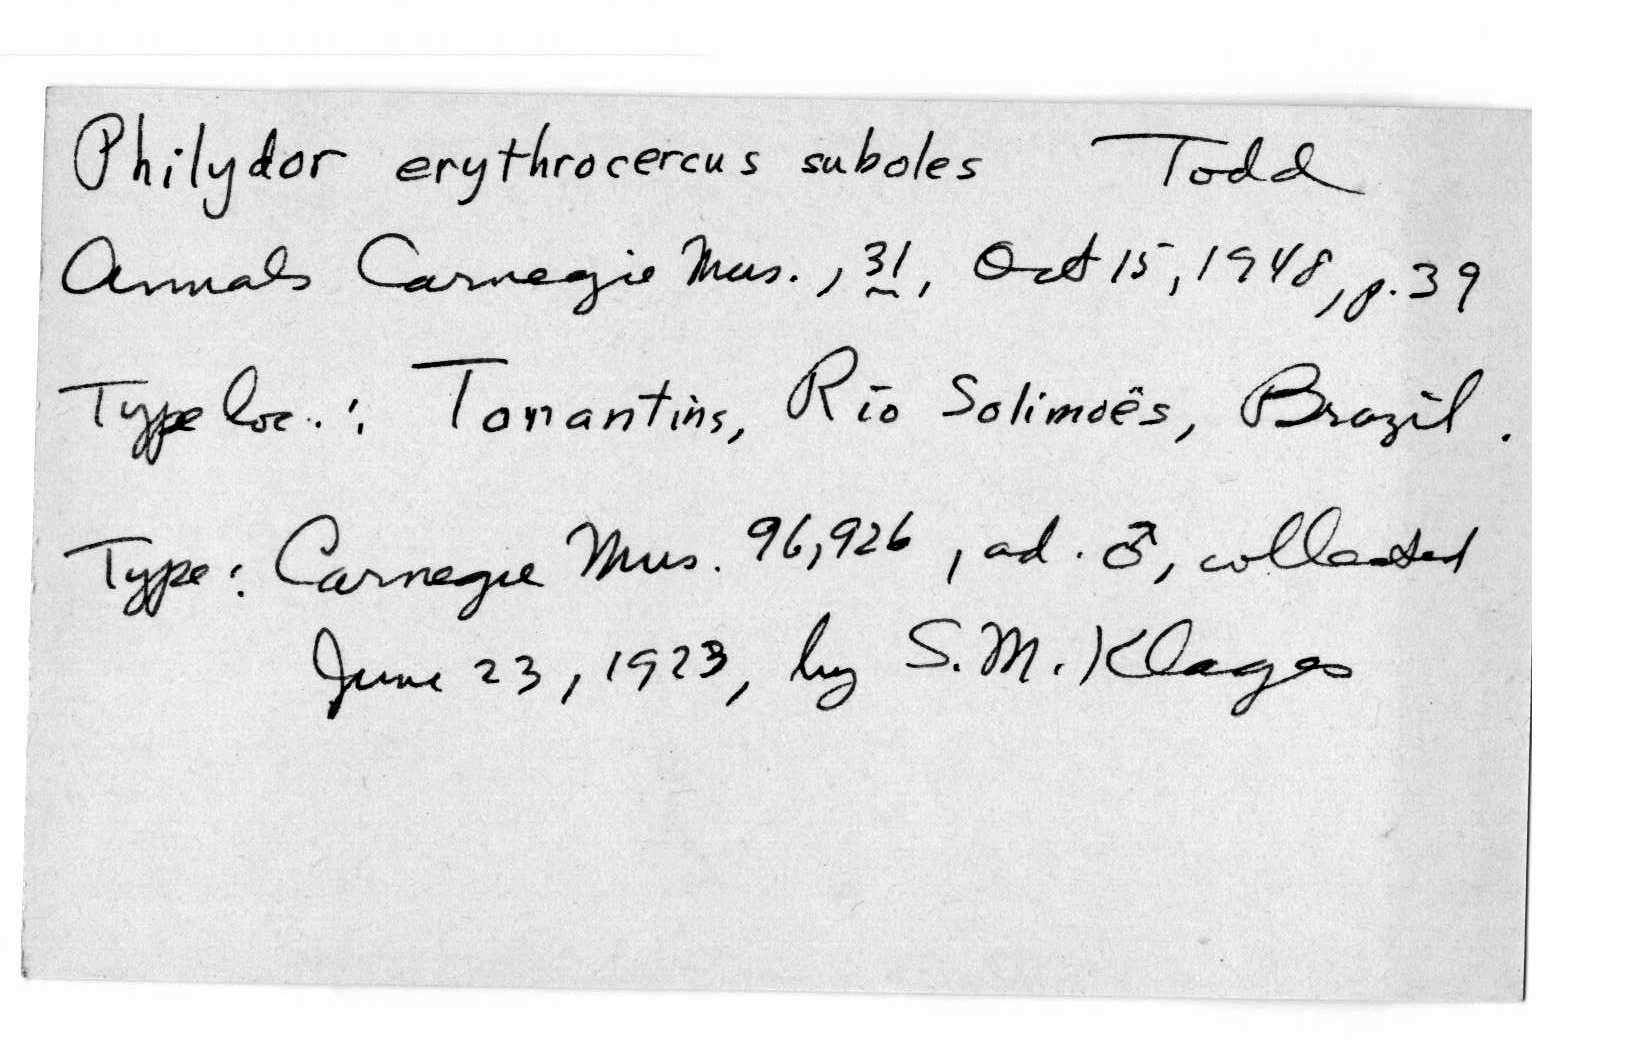 Philydor erythrocercus suboles Todd
Annals Carnegie Mus., 31, Oct 15, 1948, p. 39
Type loc.: Tonantins, Rio Solimoës, Brazil.
Type: Carnegie Mus. 96,926, ad. ♂, collected
June 23, 1923, by S. M. Klages